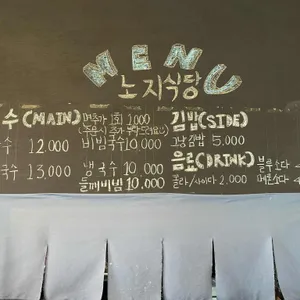 MENU
노지식당
수 (MAIN) 면추가 1회 1,000
수 12,000 비빔국수 10,000
국수 13,000 냉국수 10,000
들깨비빔 10,000
김밥 (SIDE)
그냥김밥 5,000
음료 (DRINK) 블루소다 4
콜라/사이다 2,000 메론소다 4